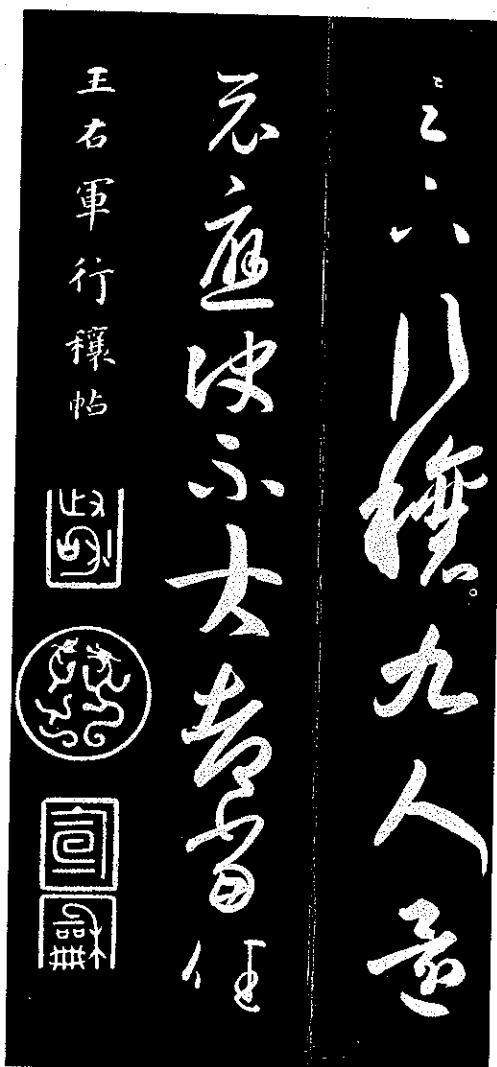 足下行穰九人還
示應決不大都當佳
王右軍行穰帖
政和
宣和